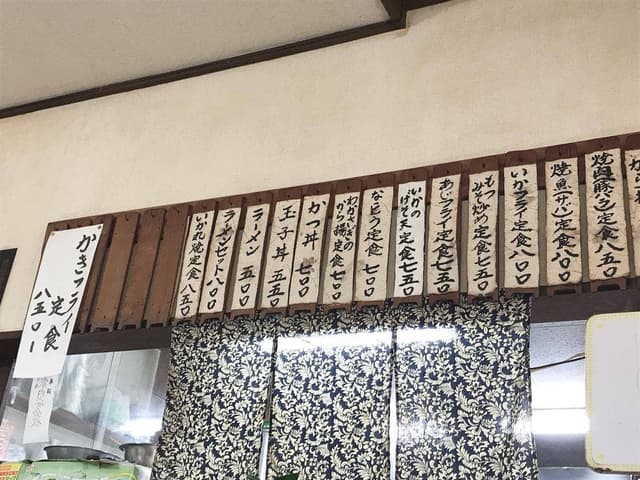 焼肉(豚バラ)定食 八五〇
焼魚(サバ)定食 八〇〇
いかフライ定食 八〇〇
もつみそ炒め定食 七五〇
あじフライ定食 七五〇
いかのげそ天定食 七五〇
なっとう定食 六〇〇
わかさぎのから揚定食 七〇〇
かつ丼 七〇〇
玉子丼 五五〇
ラーメン 五〇〇
ラーメンセット 八〇〇
いか丸焼定食 八五〇
かきフライ
定食
八五〇ー